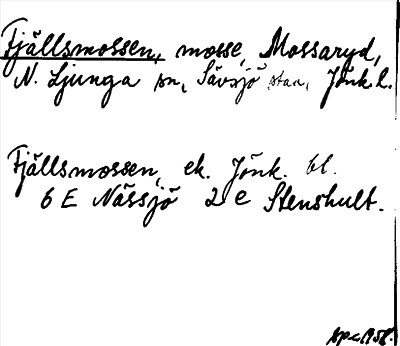 Fjällsmossen, mosse, Mossaryd,
N. Ljunga sn, Sävsjö stad, Jönk. l.
Fjällsmossen, ek. Jönk. bl.
6 E Nässjö 2 e Stenshult.